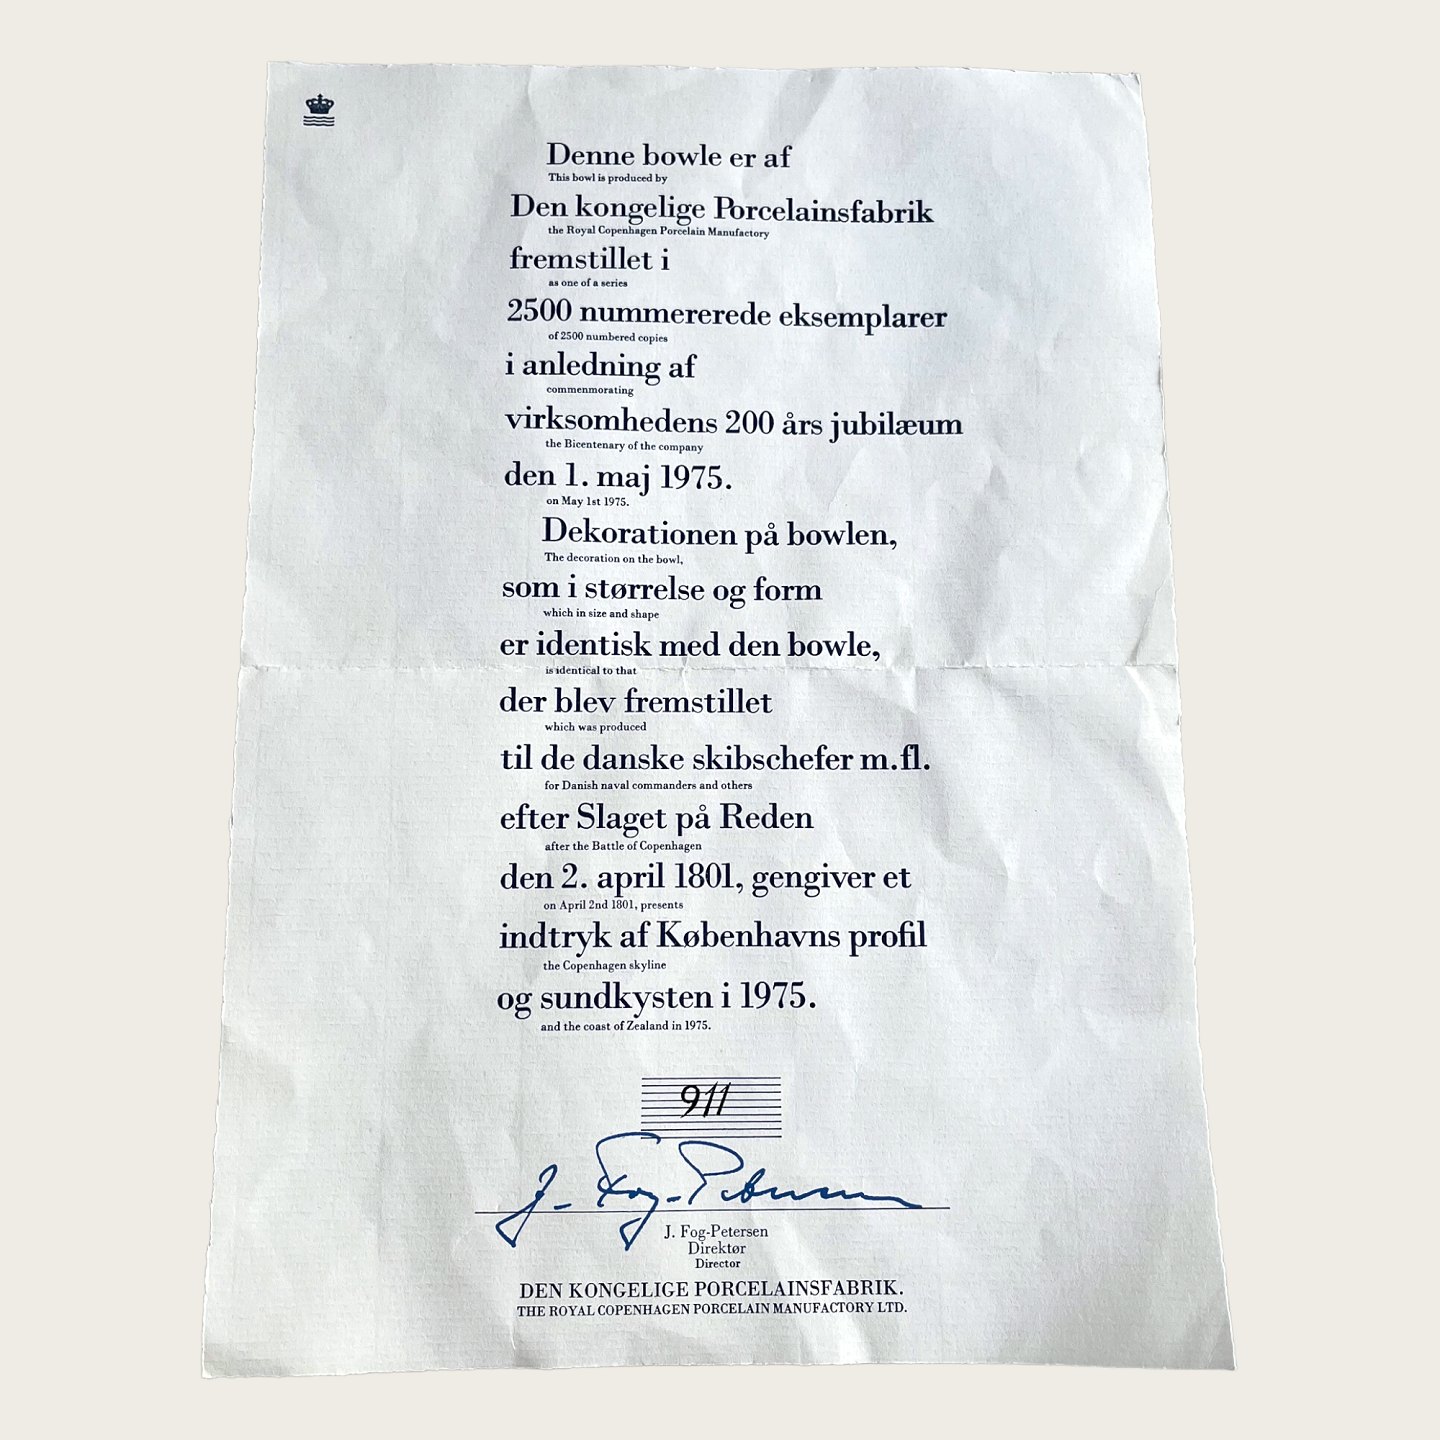 Denne bowle er af
This bowl is produced by
Den kongelige Porcelainsfabrik
the Royal Copenhagen Porcelain Manufactory
fremstillet i
as one of a series
2500 nummererede eksemplarer
of 2500 numbered copies
i anledning af
commenmorating
virksomhedens 200 års jubilæum
the Bicentenary of the company
den 1. maj 1975.
on May 1st 1975.
Dekorationen på bowlen,
The decoration on the bowl,
som i størrelse og form
which in size and shape
er identisk med den bowle,
is identical to that
der blev fremstillet
which was produced
til de danske skibschefer m.fl.
for Danish naval commanders and others
efter Slaget på Reden
after the Battle of Copenhagen
den 2. april 1801, gengiver et
on April 2nd 1801, presents
indtryk af Københavns profil
the Copenhagen skyline
og sundkysten i 1975.
and the coast of Zealand in 1975.
911
J. Fog-Petersen
J. Fog-Petersen
Direktør
Director
DEN KONGELIGE PORCELAINSFABRIK.
THE ROYAL COPENHAGEN PORCELAIN MANUFACTORY LTD.